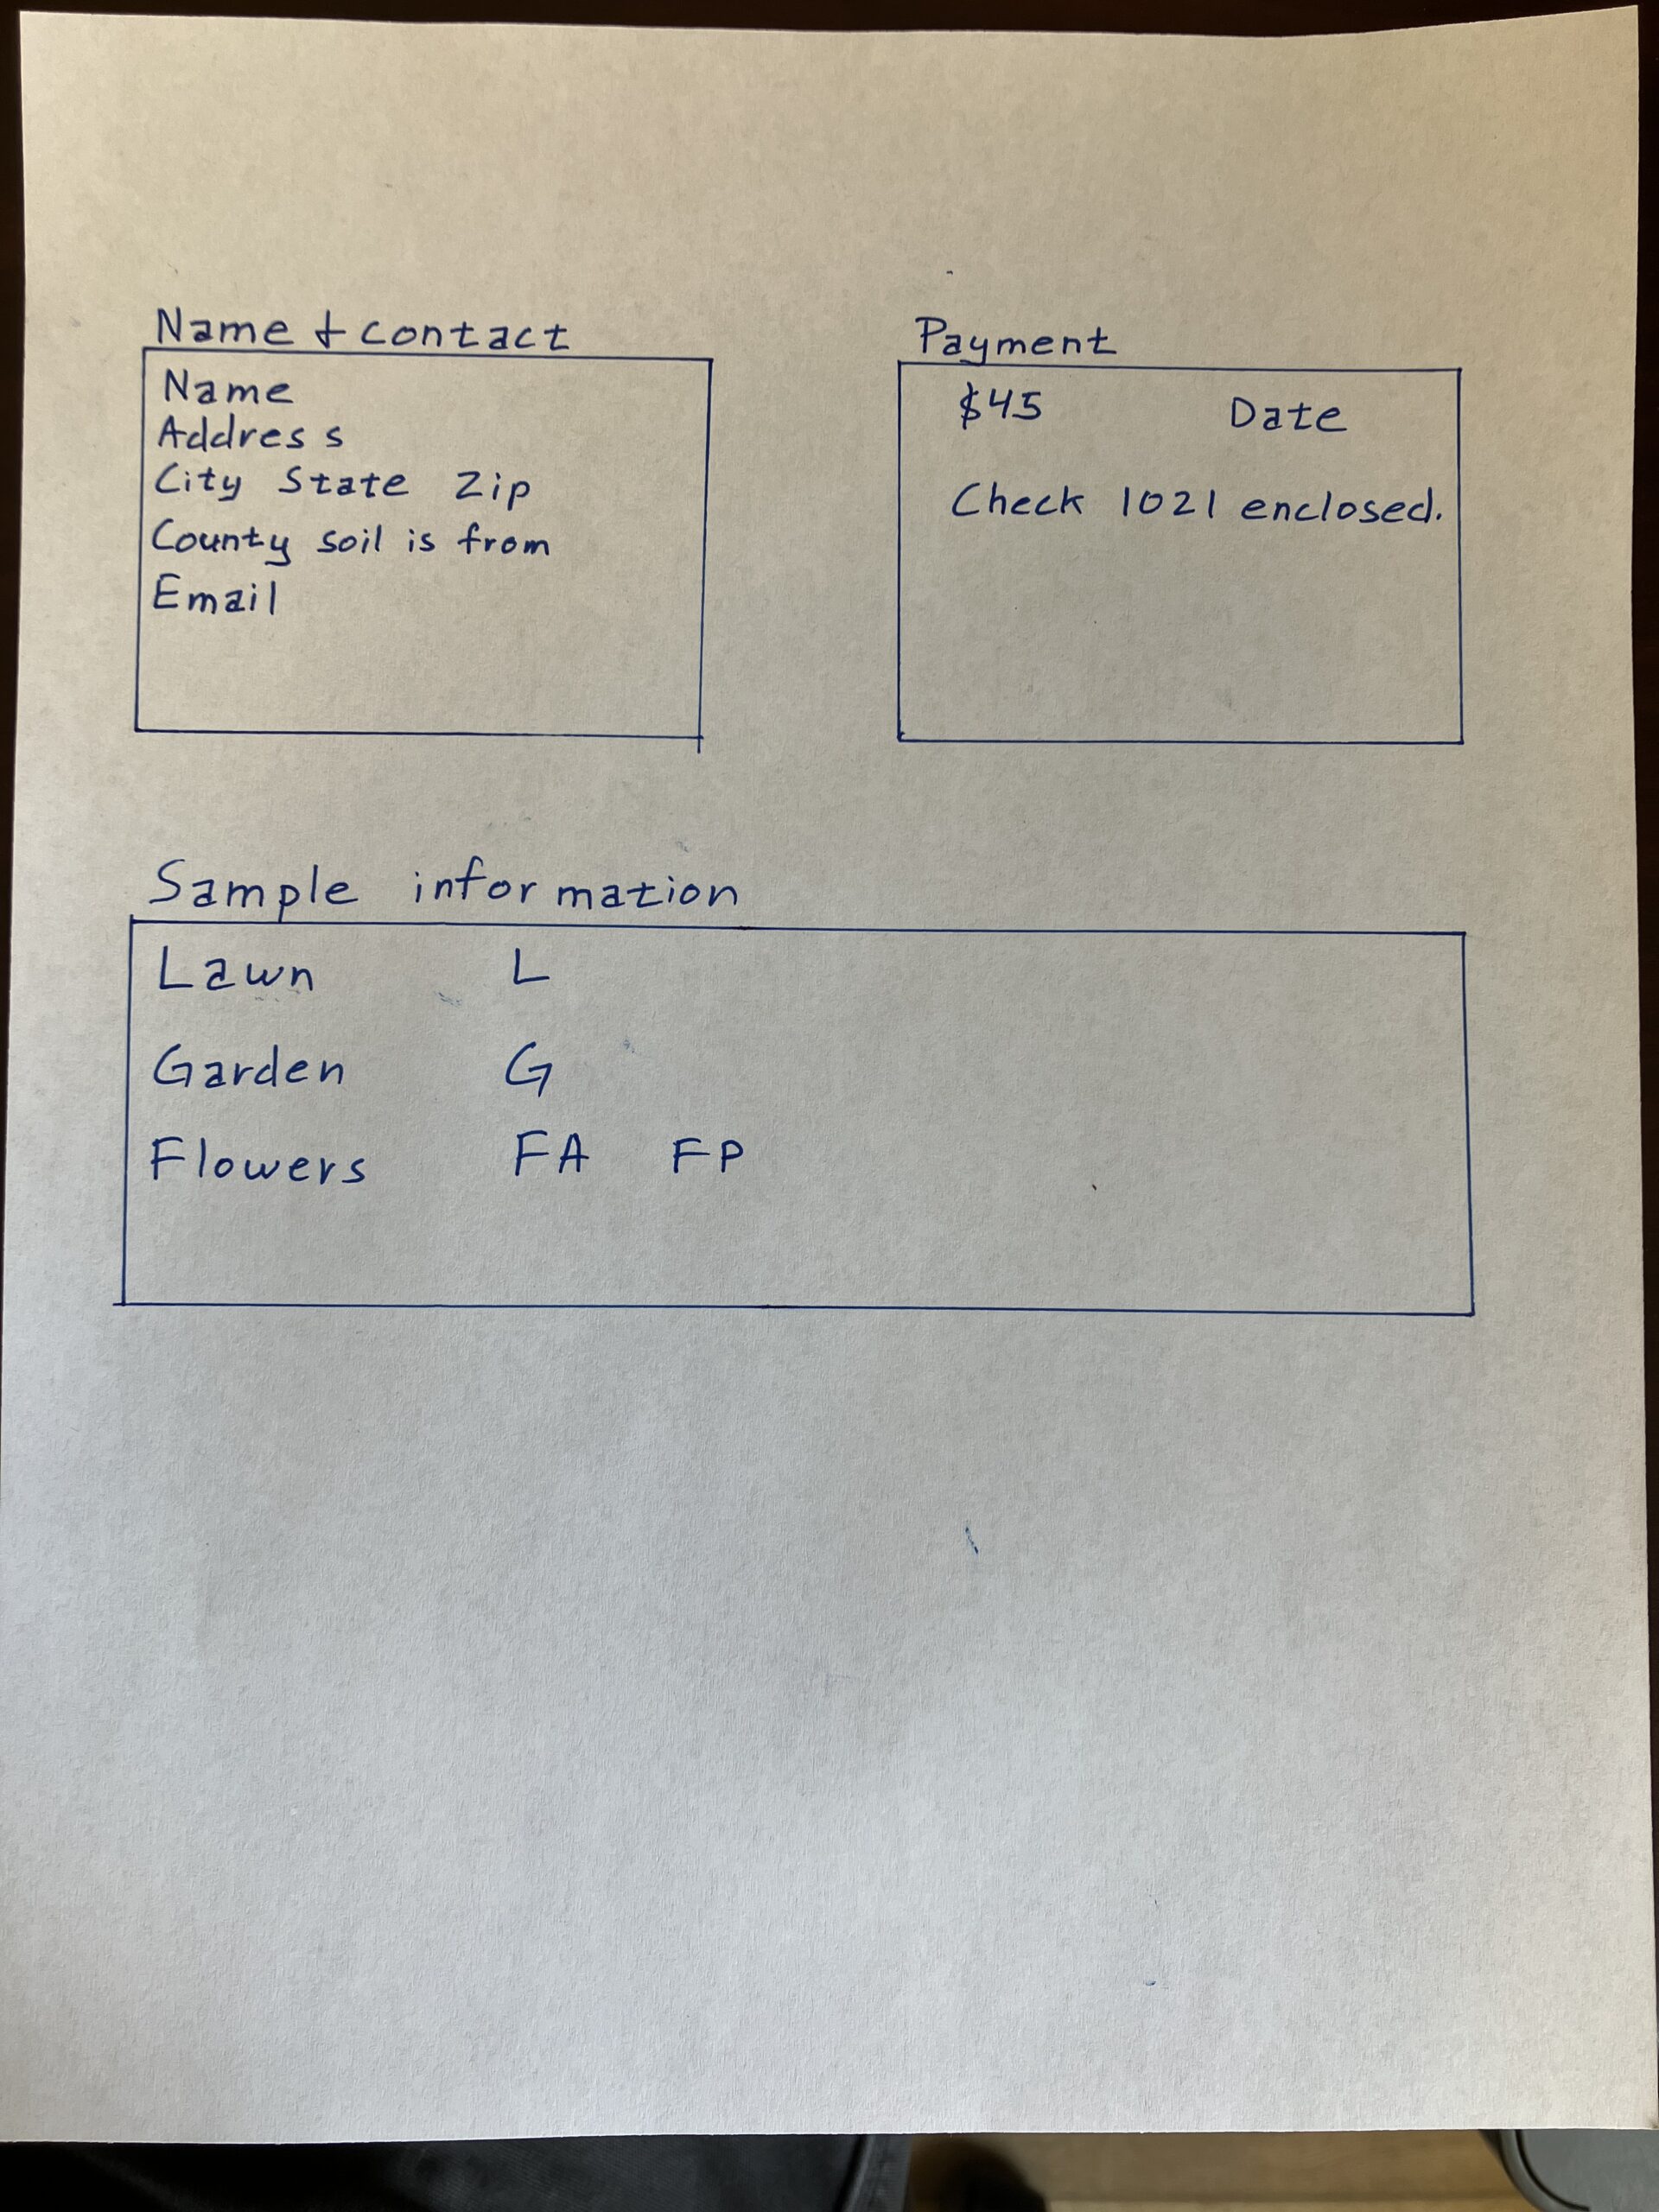 Name + contact
Name
Address
City State Zip
County soil is from
Email
Payment
$45 Date
Check 1021 enclosed.
Sample information
Lawn L
Garden G
Flowers FA FP